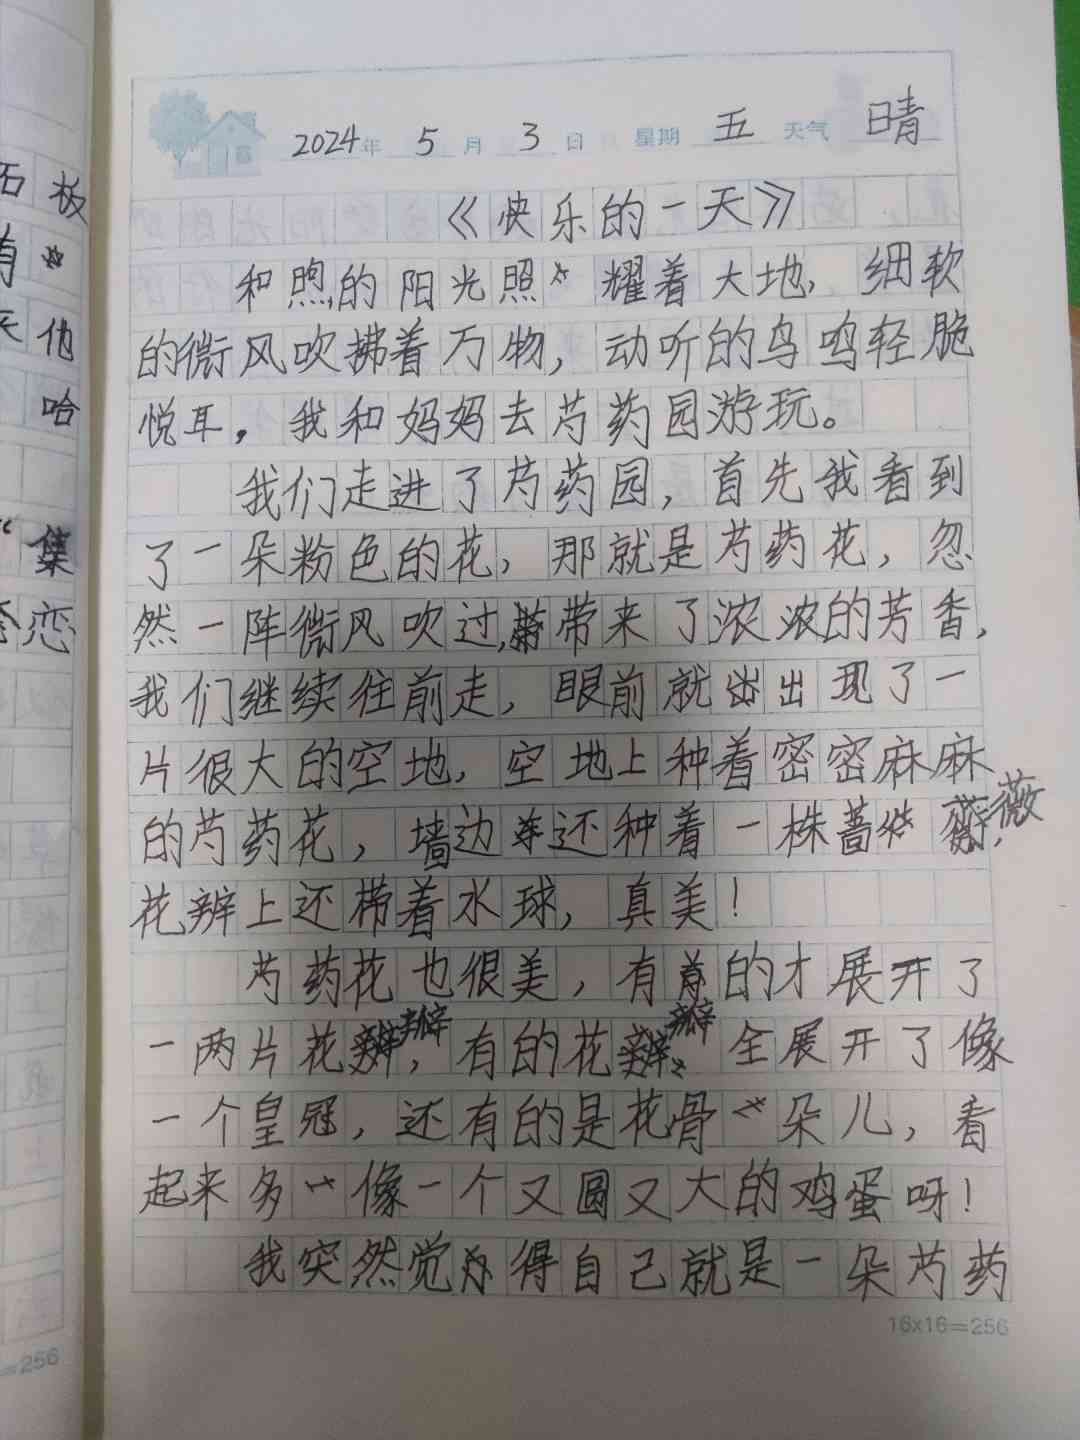 石板
有
他
哈
“集
恋
=256
2024年 5 月 3 日 星期 五 天气 晴
《快乐的一天》
和煦的阳光照耀着大地，细软
的微风吹拂着万物，动听的鸟鸣轻脆
悦耳，我和妈妈去芍药园游玩。
我们走进了芍药园，首先我看到
了一朵粉色的花，那就是芍药花，忽
然一阵微风吹过，带来了浓浓的芳香，
我们继续往前走，眼前就出出现了一
片很大的空地，空地上种着密密麻麻
的芍药花，墙边还种着一株蔷薇，
花辨上还带着水球，真美！
芍药花也很美，有的才展开了
一两片花瓣，有的花瓣全展开了像
一个皇冠，还有的是花骨朵儿，看
起来多像一个又圆又大的鸡蛋呀！
我突然觉得自己就是一朵芍药
16×16=256